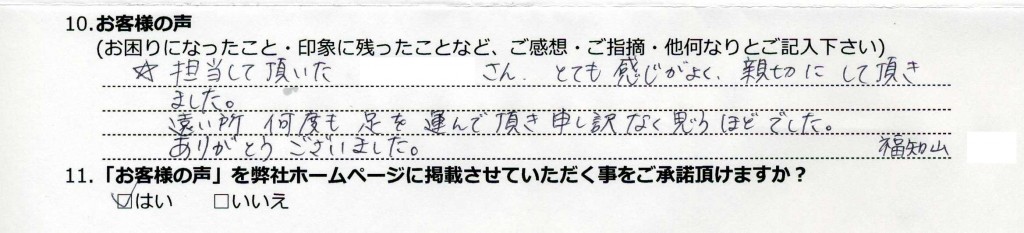 10.お客様の声
(お困りになったこと・印象に残ったことなど、ご感想・ご指摘・他何なりとご記入下さい)
☆ 担当して頂いた さん、とても 感じがよく、親切に して頂き
ました。
遠い所 何度も 足を 運んで 頂き 申し訳なく 思うほどでした。
ありがとう ございました。 福知山
11.「お客様の声」を弊社ホームページに掲載させていただく事をご承諾頂けますか？
☑はい □いいえ